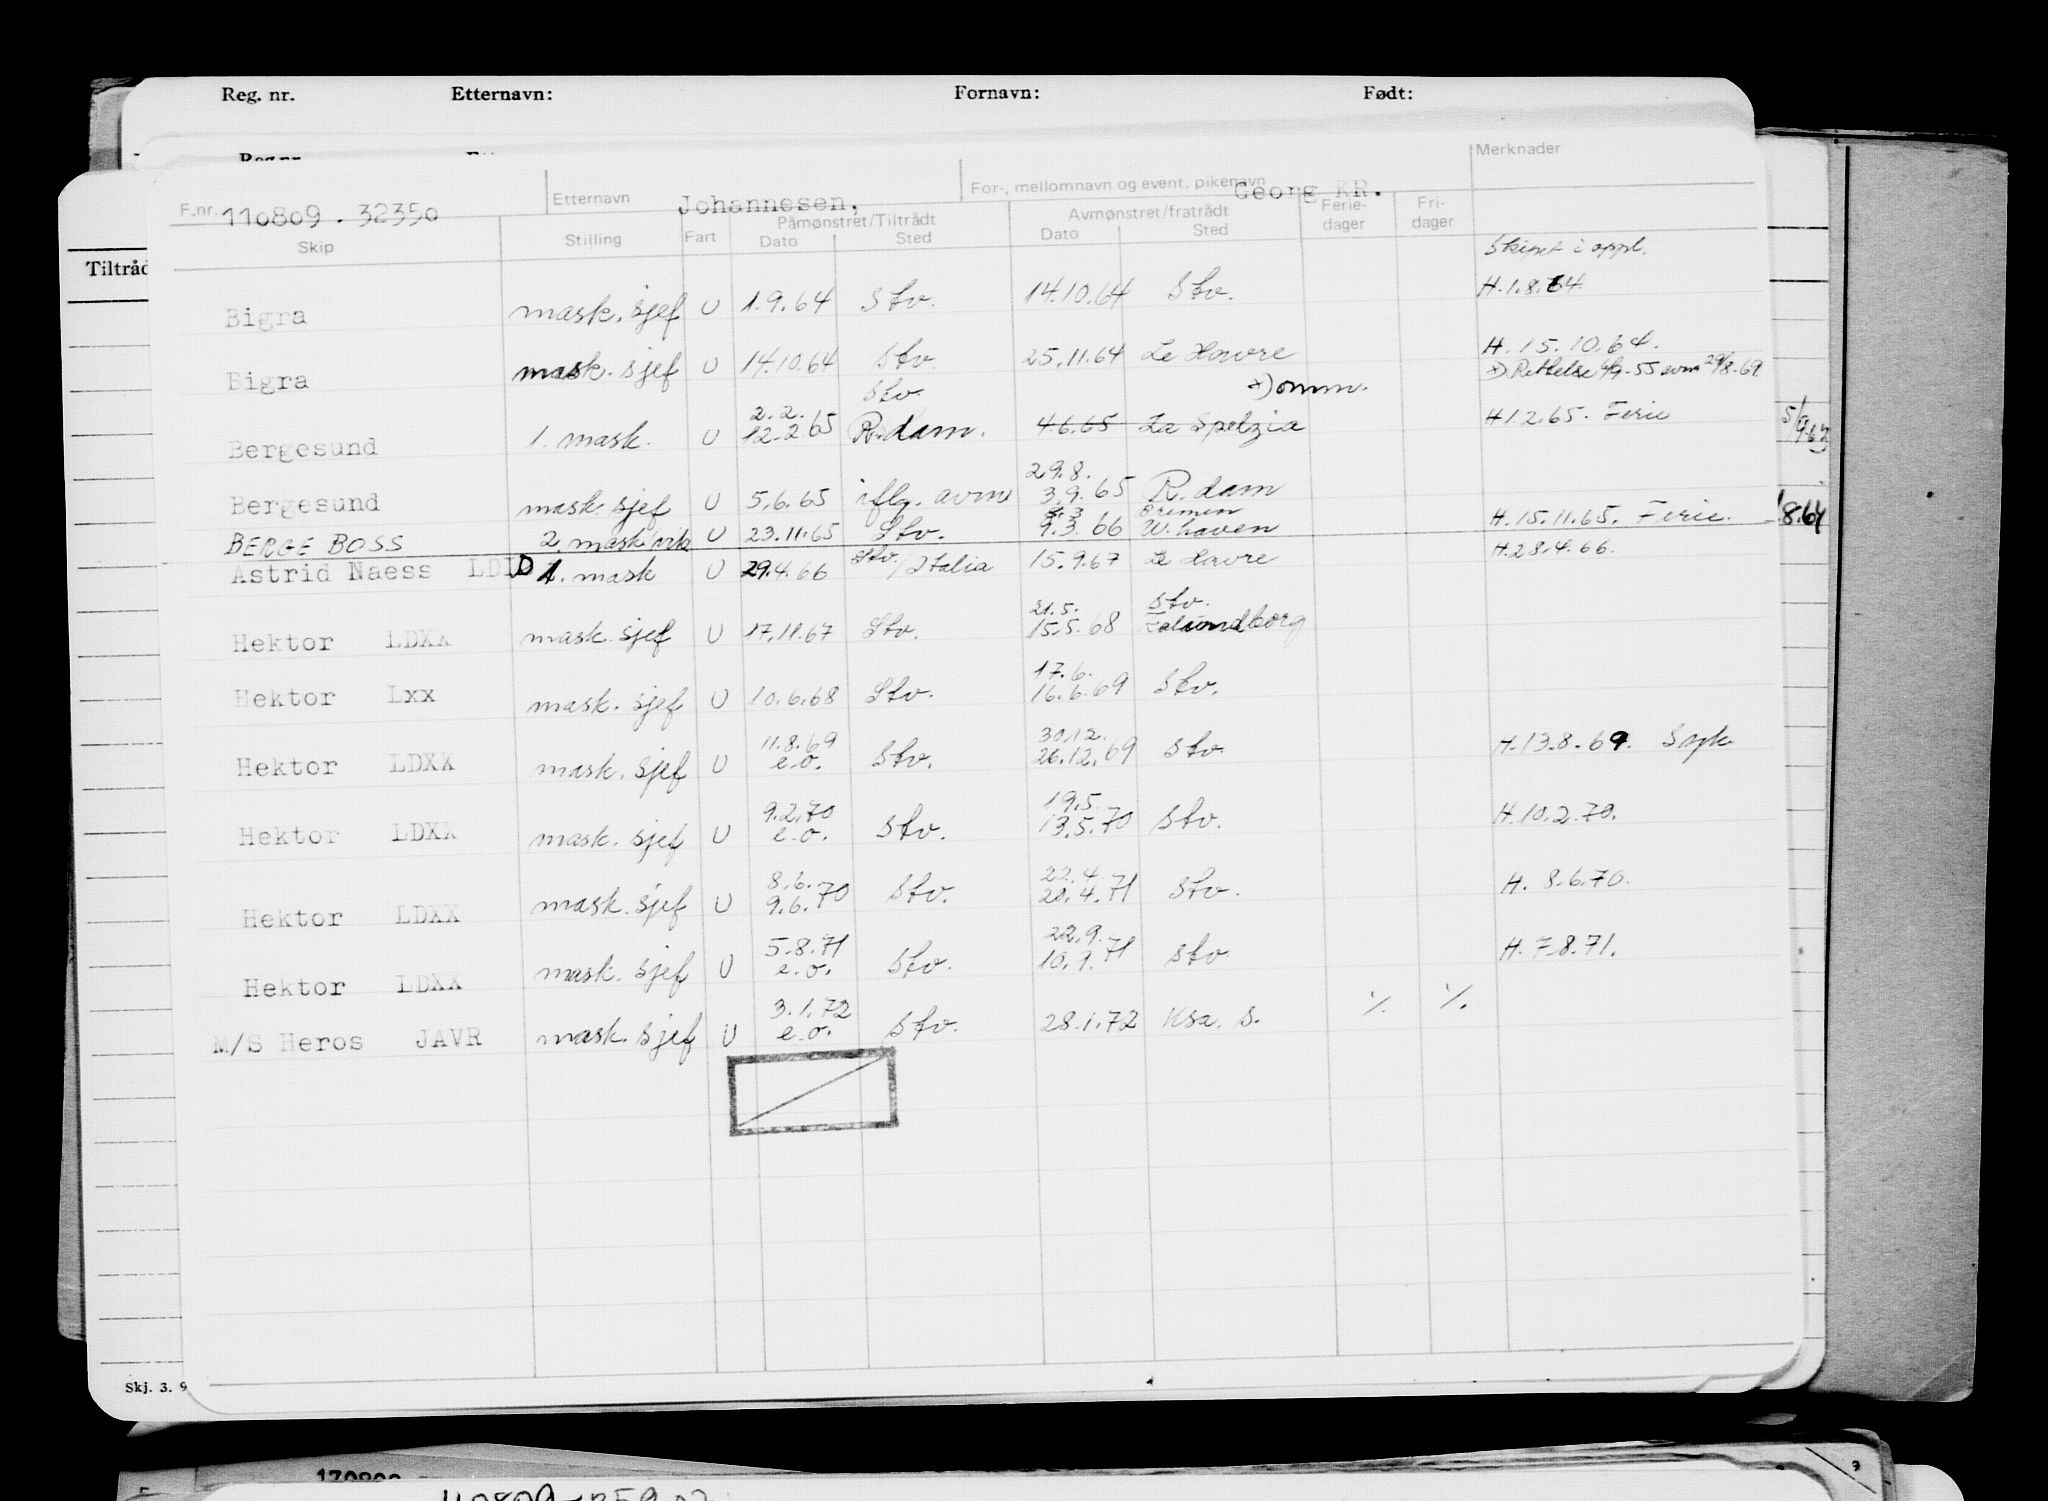 Reg. nr. Etternavn: Fornavn: Født:
Merknader
F.nr. 110809.32350 Etternavn Johannesen, For-, mellomnavn og event. pikenavn Georg KR.
Påmønstret/Tiltrådt Avmønstret/fratrådt Ferie- Fri-
Skip Stilling Fart Dato Sted Dato Sted dager dager
Tiltråd
Skipet i oppl.
Bigra mask. sjef U 1.9.64 Stv. 14.10.64 Stv. H.1.8.64
Bigra mask. sjef U 14.10.64 Stv. 25.11.64 Le Havre H.15.10.64.
Stv. x) omm. x) Rettelse
2.2.
Bergesund 1. mask. U 12.2.65 R.dam. 4.6.65 La Spetzia H1.2.65. Ferie
29.8.
Bergesund mask. sjef U 5.6.65 iflg. avm 3.9.65 R.dam
Bremen
BERGE BOSS 2. mask vik U 23.11.65 Stv. 9.3.66 W.haven H.15.11.65. Ferie. 8.64
Astrid Naess LDID 1. mask U 29.4.66 Stv./Italia 15.9.67 Le Havre H.28.4.66.
21.5. Stv.
Hektor LDXX mask. sjef U 17.11.67 Stv. 15.5.68
17.6.
Hektor Lxx mask. sjef U 10.6.68 Stv. 16.6.69 Stv.
11.8.69 30.12.
Hektor LDXX mask. sjef U e.o. Stv. 26.12.69 Stv H.13.8.69. Syk
9.2.70 19.5.
Hektor LDXX mask. sjef U e.o. Stv. 13.5.70 Stv. H.10.2.70.
8.6. 22.4.
Hektor LDXX mask. sjef U 9.6.70 Stv. 20.4.71 Stv. H. 8.6.70.
5.8.71 22.9.
Hektor LDXX mask. sjef U e.o. Stv. 10.9.71 Stv H. 7.8.71.
3.1.72
M/S Heros JAVR mask. sjef U e.o. Stv. 28.1.72 Ksa. S. ./. ./.
Skj. 3. 9